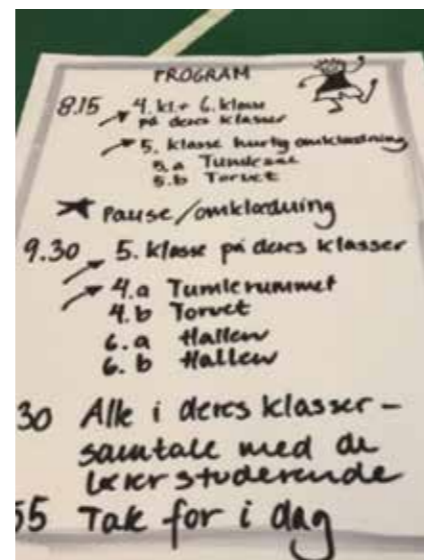 PROGRAM
8.15 4. kl.+ 6. klasse
på deres klasser
5. klasse hurtig omklædning
5.a
5.b Torvet
Pause/omklædning
9.30 5. klasse på deres klasser
4.a Tumlerummet
4.b Torvet
6.a Hallen
6.b Hallen
30 Alle i deres klasser –
samtale med de
lærerstuderende
55 Tak for i dag